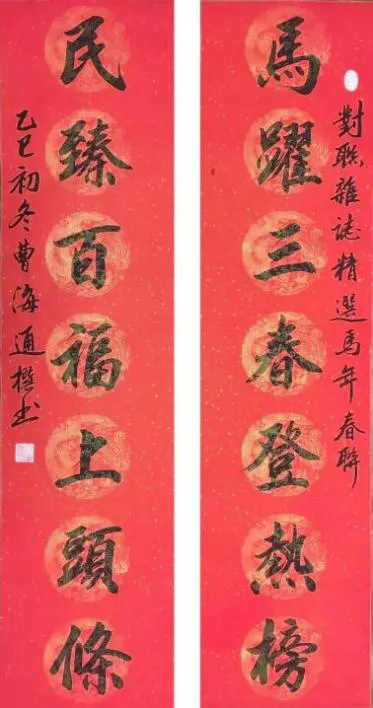 對聯雜誌精選馬年春聯
馬躍三春登熱榜
民臻百福上頭條
乙巳初冬曹海通撰书